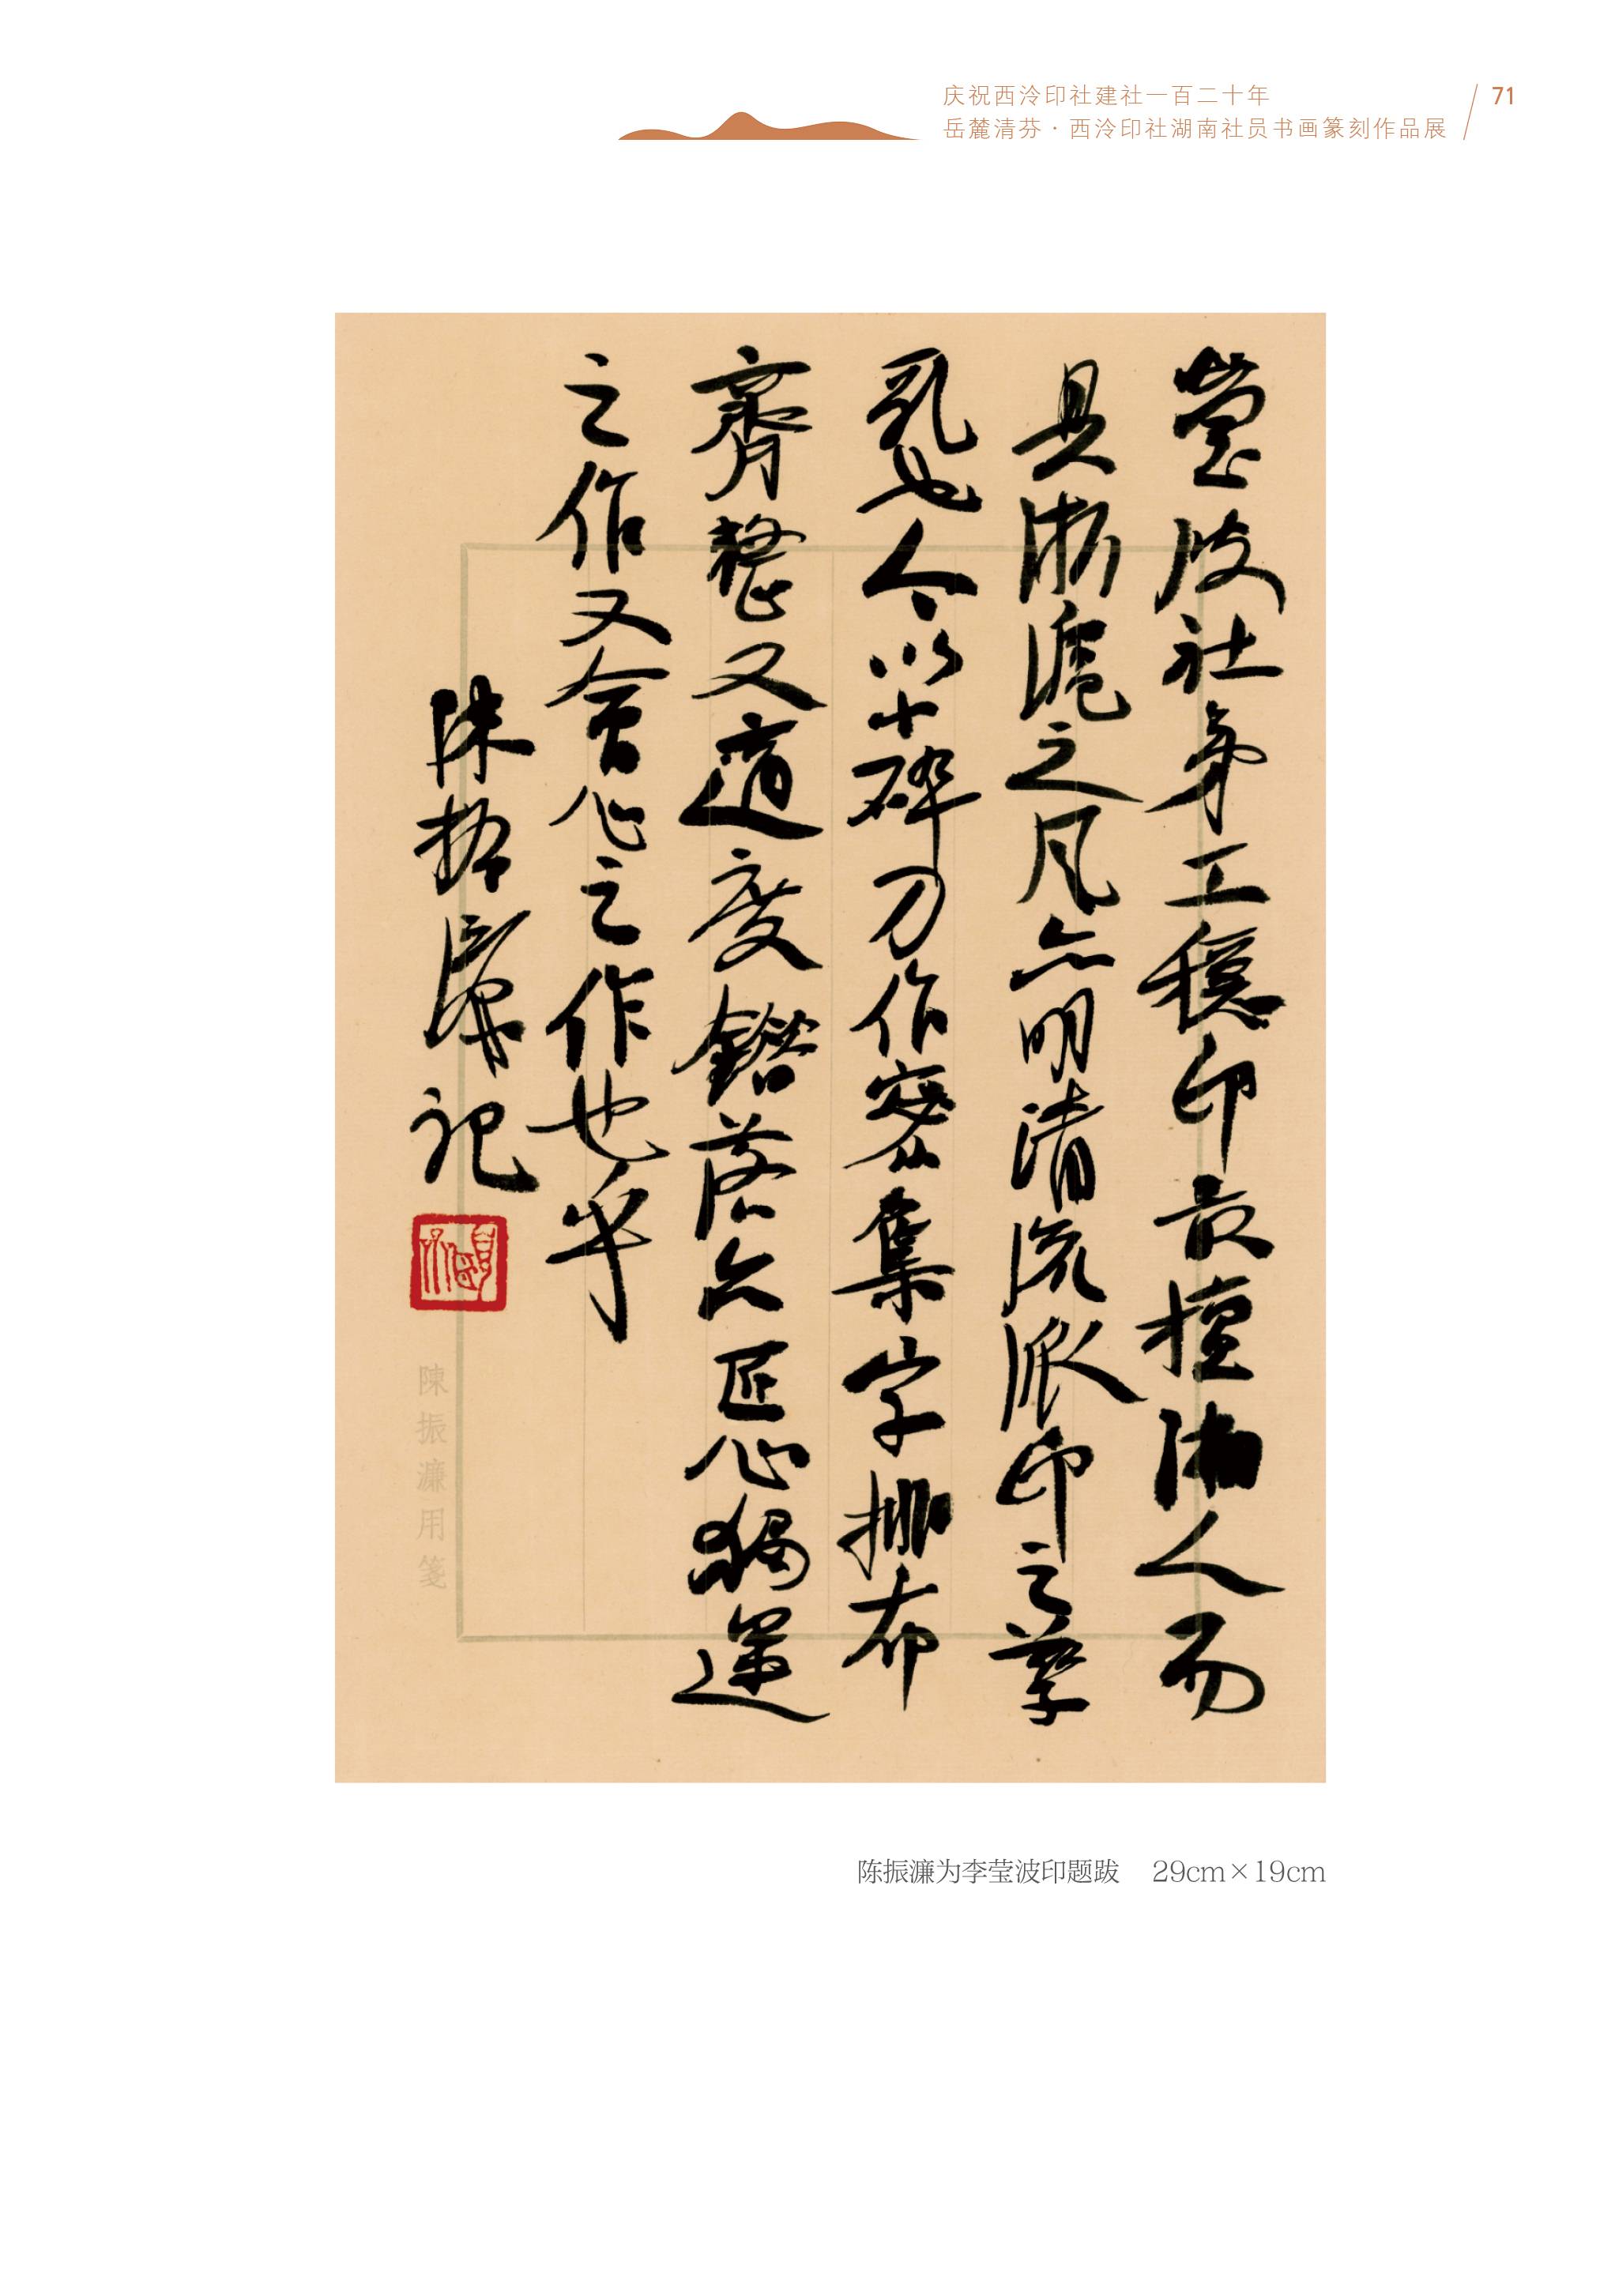 庆祝西泠印社建社一百二十年
岳麓清芬·西泠印社湖南社员书画篆刻作品展
71
莹波社弟工稳印最擅湘人而
具浙滬之风亦明清流派印之孳
乳也今以小碎刀作密集字排布
齊整又適度錯落亦匠心独運
之作又會心之作也乎
陈振濂记
陳振濂用箋
陈振濂为李莹波印题跋 29cm×19cm